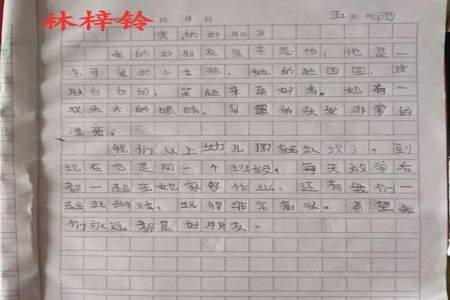 林梓铃
月 日 五 雨
我的好朋友
我的好朋友是李思怡，她是一
个可爱的小女孩，她的脸圆圆，皮
肤白白的，笑起来真好看。她有一
双大大的眼睛。乌黑的头发非常的
漂亮。
我们从上幼儿园就认识了，到
现在也是同一个班级，每天放学后
都一起去她家写作业，还有我们一
起玩游戏，玩得非常高兴。希望我
们永远都是好朋友。